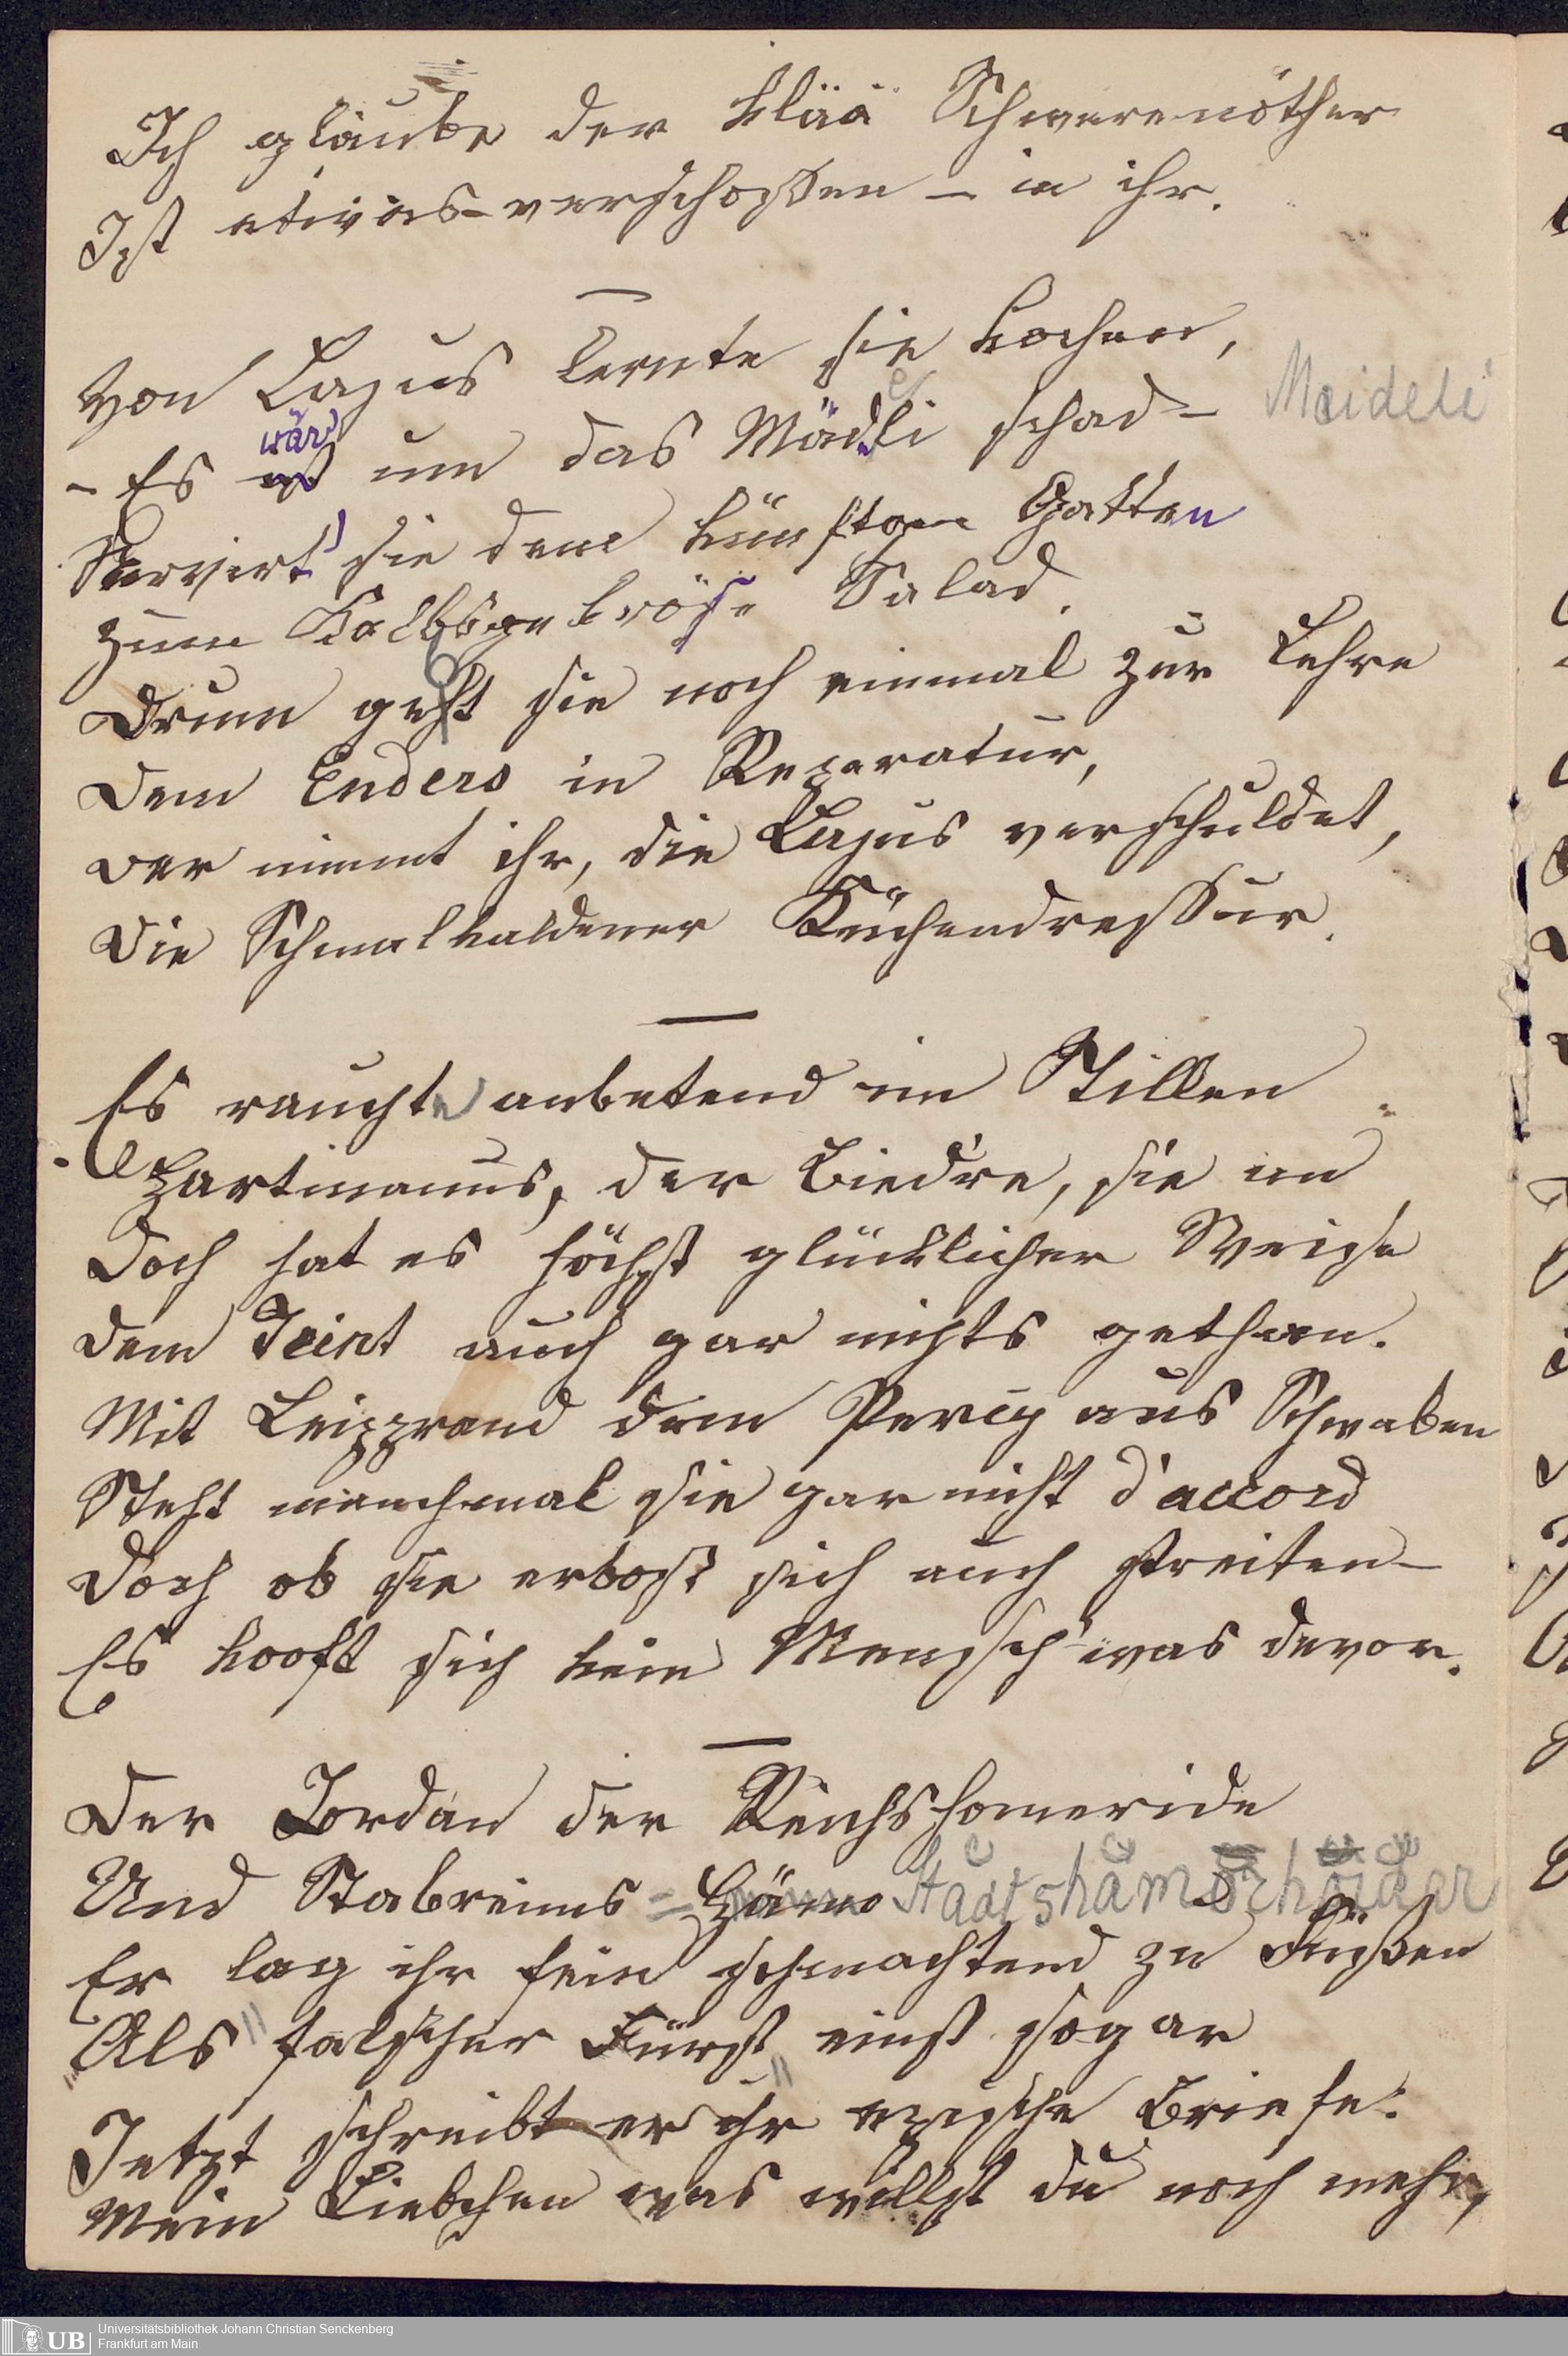 Ich glaube der klää Schwerenöther
Ist etwas verschoßen – in ihr.
Von Cajus lernte sie kochen,
– Es wär um das Mädeli schad – Meideli
Servirt' sie dem künftgen Gatten
Zum Kalbsgekröse Salad.
Drum geht sie noch einmal zur Lehre
Dem Enders in Reparatur,
Der nimmt ihr, die Cajus verschuldet,
Die Schmalkaldener Küchendressur.
Es rauchte anbetend im Stillen
Hartmanns, der Biedre, sie an
Doch hat es höchst glücklicher Weise
Dem Teint auch gar nichts gethan.
Mit Leipprand dem Percy aus Schwaben
Steht manchmal sie gar nicht d'accord
Doch ob sie erbost sich auch streiten –
Es kooft sich kein Mensch was davor.
Der Jordan der Reichshomeride
Und Stabreims = Stadtshämorrhoidar
Er lag ihr fein schmachtend zu Füßen
Als "falscher Fürst" einst sogar
Jetzt schreibt er ihr epische Briefe:
Mein Liebchen was willst du noch mehr,
Universitätsbibliothek Johann Christian Senckenberg
Frankfurt am Main
UB